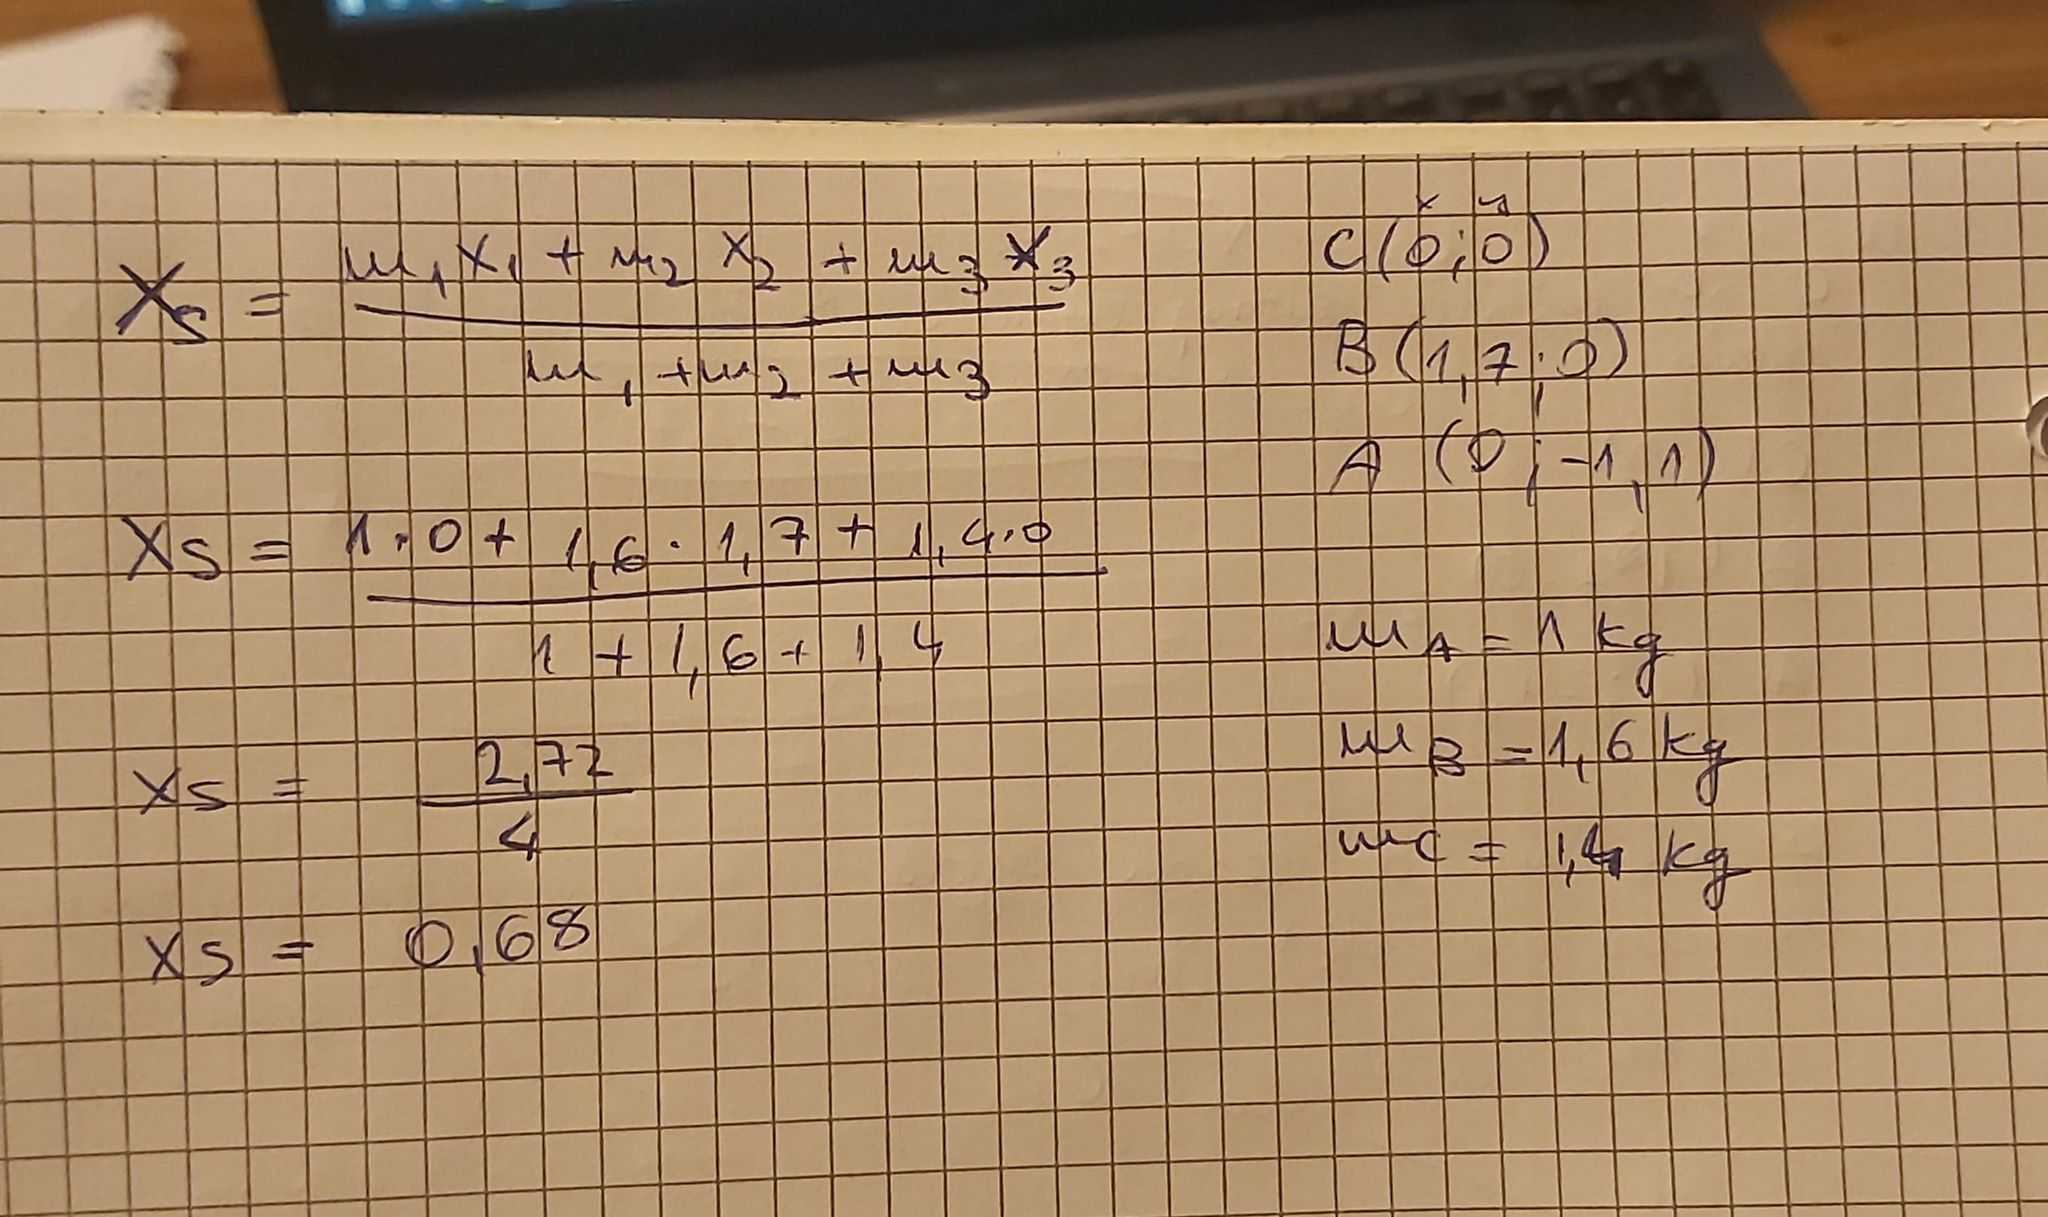 Xs = m1 x1 + m2 x2 + m3 x3
m1 + m2 + m3
xs = 1·0 + 1,6 · 1,7 + 1,4·0
1 + 1,6 + 1,4
xs = 2,72
4
xs = 0,68
x y
C(0;0)
B(1,7;0)
A (0;-1,1)
mA = 1 kg
mB = 1,6 kg
mC = 1,4 kg